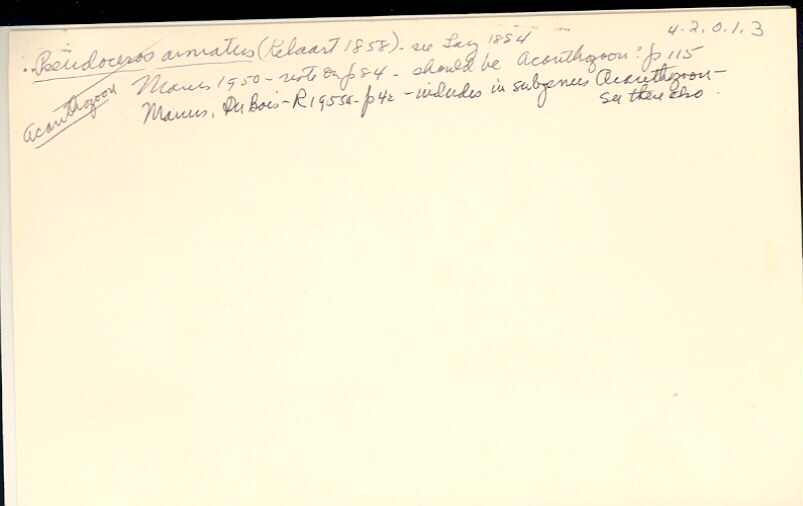 4.2.0.1.3
Pseudoceros armatus (Kelaart 1858). see Lang 1884
Marcus 1950 - note on p84 - should be Acanthozoon: p 115
Acanthozoon
Marcus, Du Bois-R 1955a - p42 - includes in subgenus Acanthozoon -
see there also.